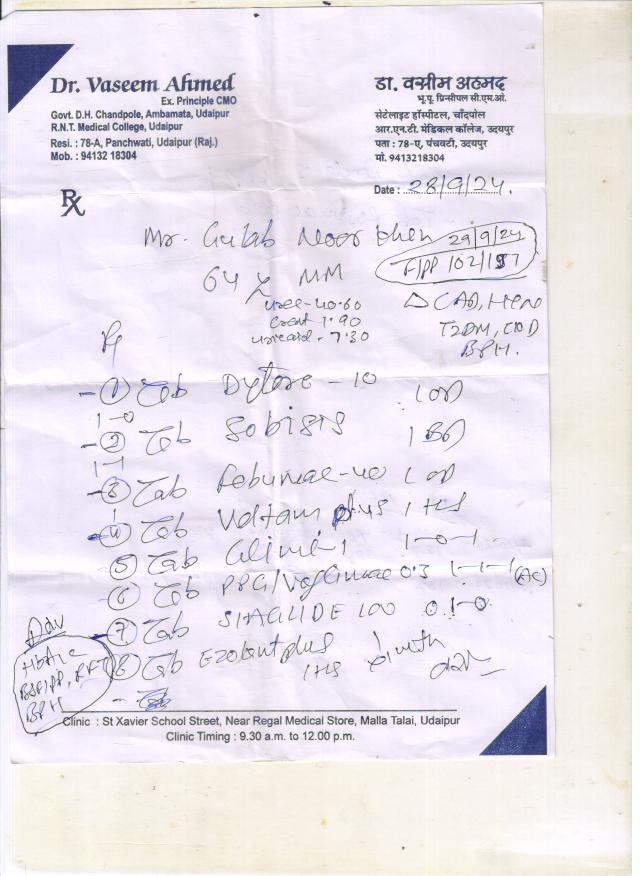 Dr. Vaseem Ahmed
Ex. Principle CMO
Govt. D.H. Chandpole, Ambamata, Udaipur
R.N.T. Medical College, Udaipur
Resi. : 78-A, Panchwati, Udaipur (Raj.)
Mob. : 94132 18304
डा. वसीम अहमद
भू.पू. प्रिंसीपल सी.एम.ओ.
सेटेलाइट हॉस्पीटल, चाँदपोल
आर.एन.टी. मेडिकल कॉलेज, उदयपुर
पता : 78-ए, पंचवटी, उदयपुर
मो. 9413218304
Date : 28/9/24.
Rx
Mr. Gulab Noor Khen
29/9/24
F/PP 102/157
64 y MM
Uree-40.60
Creat 1.90
Uricacid - 7.30
△ CAD, HTN
T2DM, CKD
BPH.
Rx
① Tab Dytore - 10 1 OD
1-0
② Tab Sobisis 1 BD
1-1
③ Tab Febumac-40 1 OD
④ Tab Veltam plus 1 HS
⑤ Tab Glimer 1 1-0-1
⑥ Tab PPG/Voglimac 0.3 1-1-1 (AC)
⑦ Tab SITAGLIDE 100 0-1-0
⑧ Tab plus
1 HS
Adv
HbA1c
BSF/PP, RFT
BPH
Clinic : St Xavier School Street, Near Regal Medical Store, Malla Talai, Udaipur
Clinic Timing : 9.30 a.m. to 12.00 p.m.